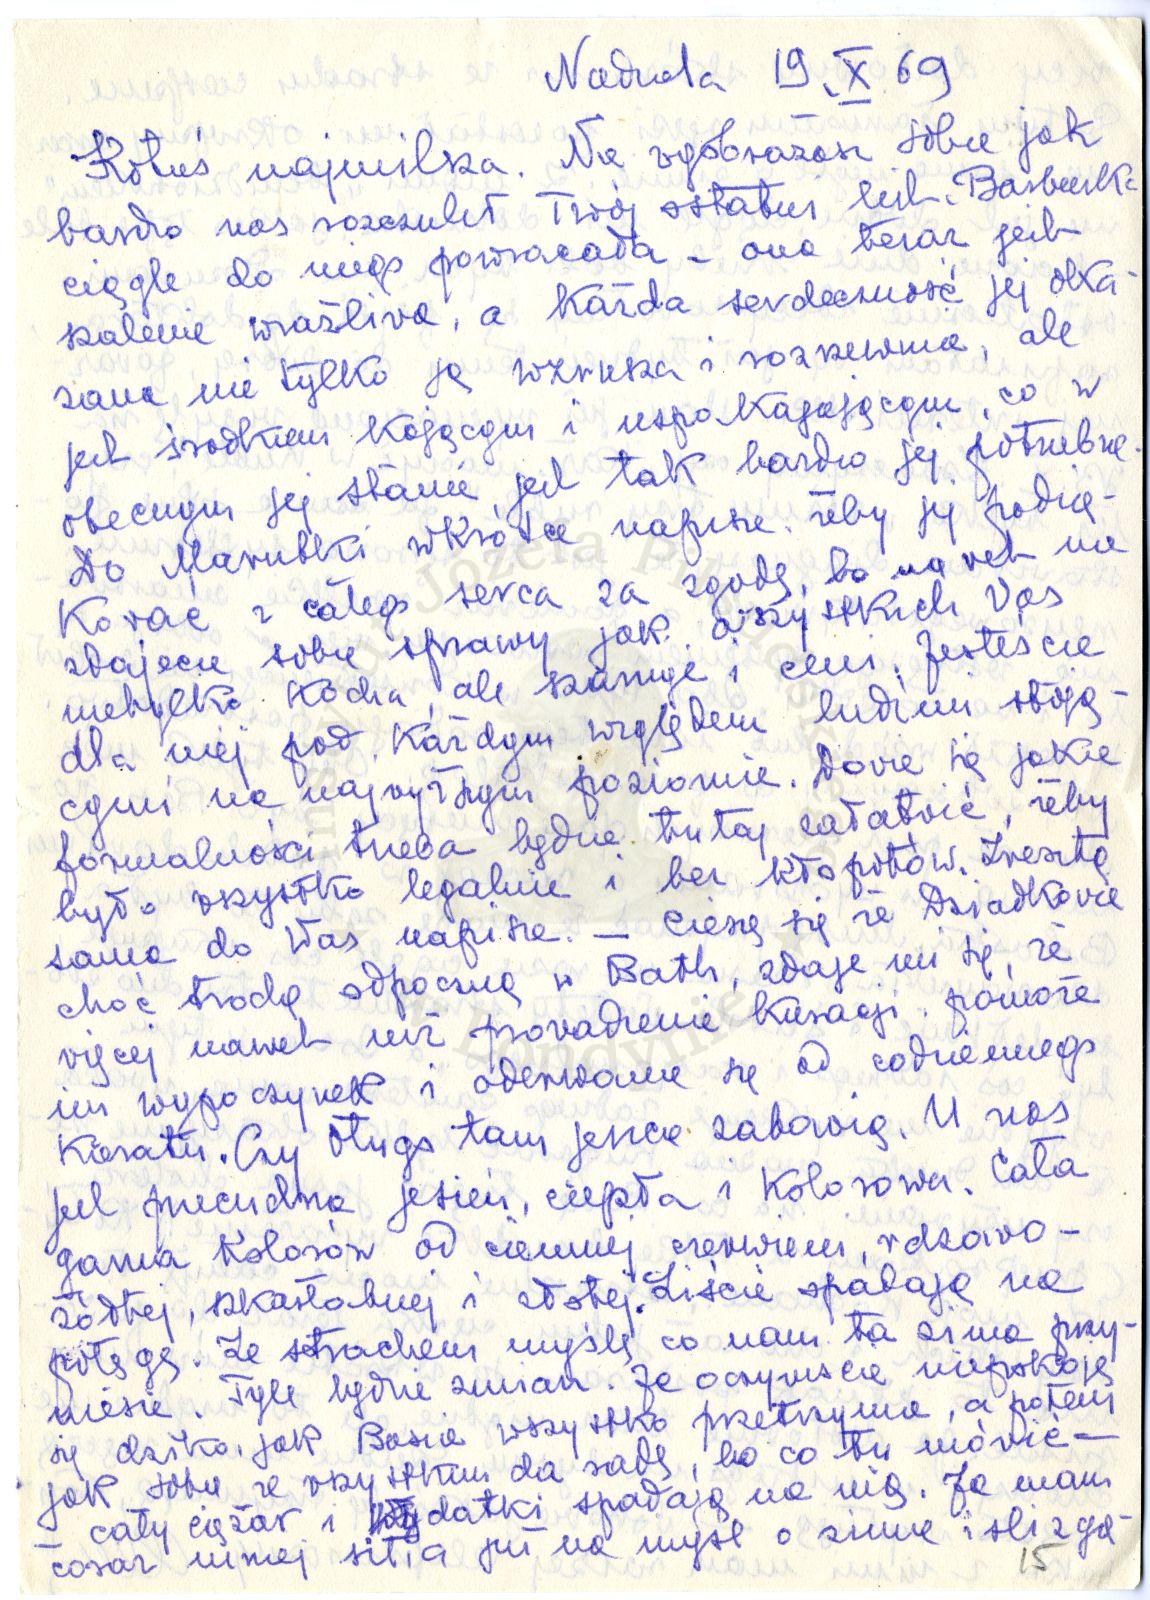 Niedziela 19.X.69
Kotuś najmilsza. Nie wyobrażasz sobie jak
bardzo nas rozczulił Twój ostatni list. Basieńka
ciągle do niego powracała – ona teraz jest
szalenie wrażliwa, a każda serdeczność jej oka-
zana nie tylko ją wzrusza i rozrzewnia, ale
jest środkiem kojącym i uspokajającym, co w
obecnym jej stanie jest tak bardzo jej potrzebne.
Do Marubki wkrótce napisze żeby jej podzię-
kować z całego serca za zgodę, bo nawet nie
zdajecie sobie sprawy jak wszystkich Was
nietylko kocha, ale szanuje i ceni. Jesteście
dla niej pod każdym względem ludźmi stoją-
cymi na najwyższym poziomie. Dowie się jakie
formalności trzeba będzie tutaj załatwić, żeby
było wszystko legalnie i bez kłopotów. Zresztą
sama do Was napisze. – Cieszę się że Dziadkowie
choć trochę odpoczną w Bath, zdaje mi się, że
więcej nawet niż prowadzenie kuracji, pomoże
im wypoczynek i oderwanie się od codziennego
kieratu. Czy długo tam jeszcze zabawią. U nas
jest przecudna jesień, ciepła i kolorowa. Cała
gama kolorów od ciemnej czerwieni, rdzawo-
żółtej, szkarłatnej i złotej. Liście spadają na
potęgę. Ze strachem myślę co nam ta zima przy-
niesie. Tyle będzie zmian. Ja oczywiście niepokoję
się dziko, jak Basia wszystko przetrzyma, a potem
jak sobie ze wszystkim da radę, bo co tu mówić –
cały ciężar i wydatki spadają na nią. Ja mam
coraz mniej sił a już na myśl o zimie i ślizga-
15
Józefa Piłsudskiego
w Londynie